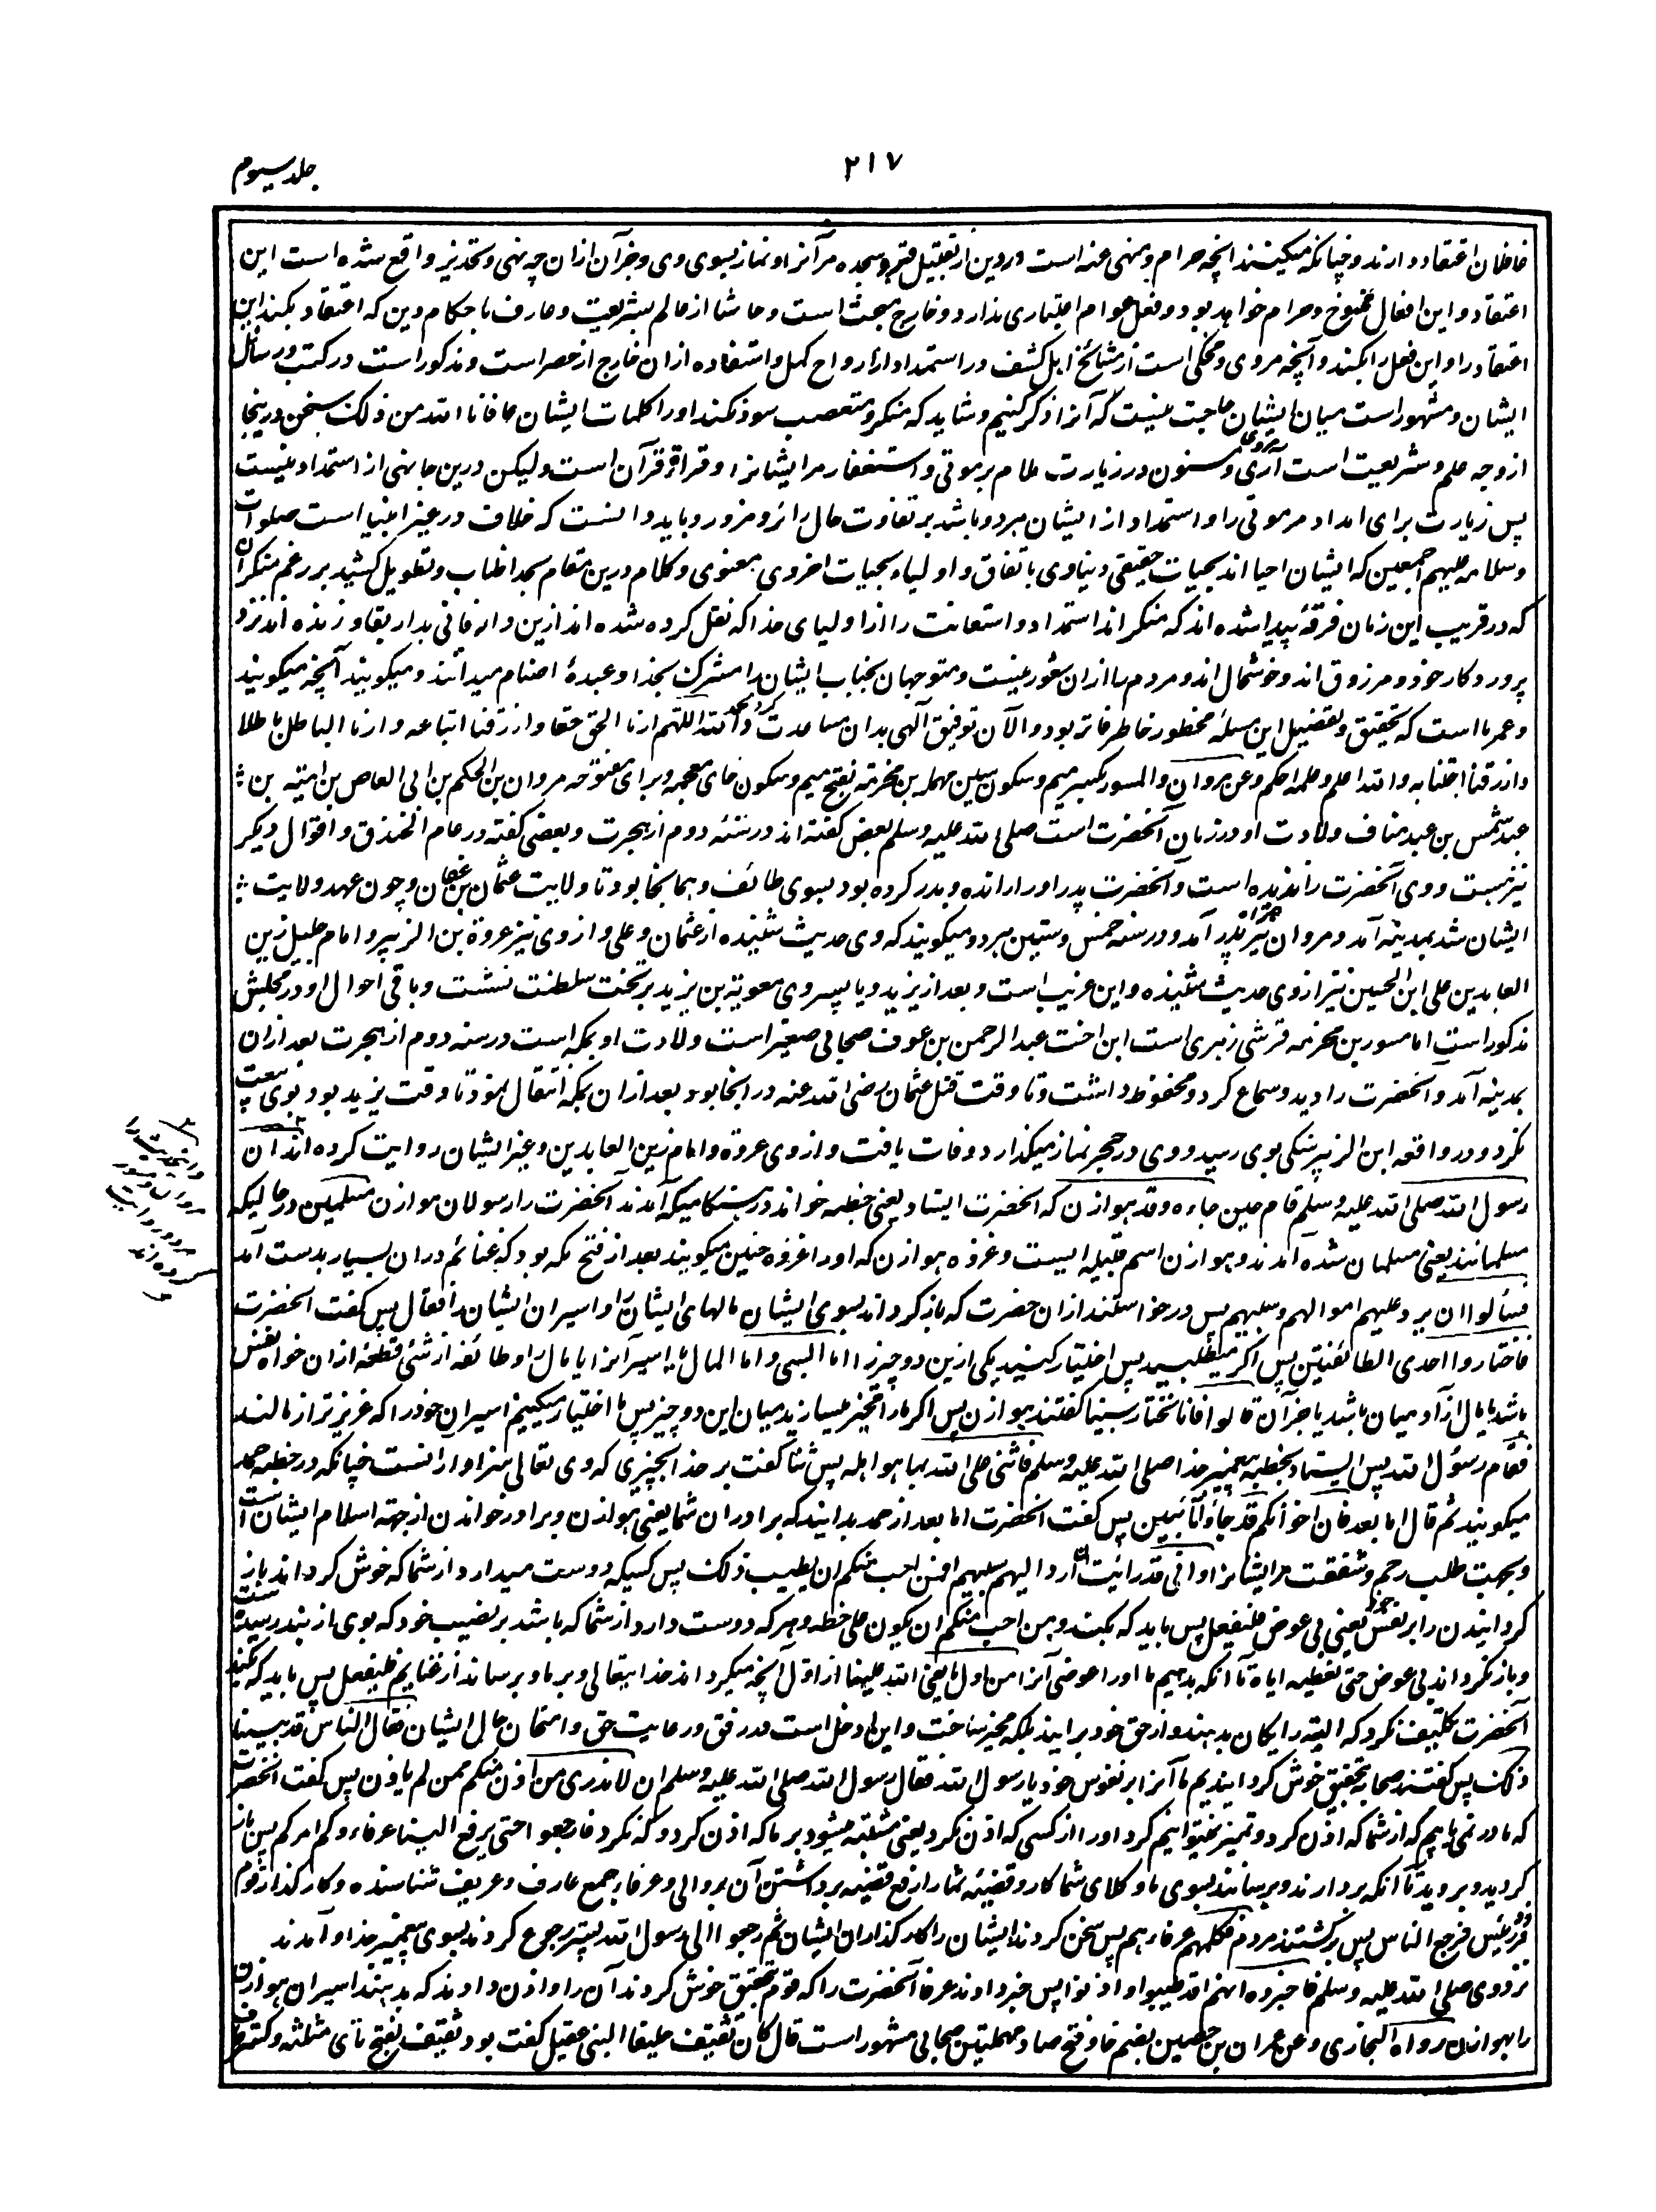 ۲۱۷
جلد سیوم
غافلان اعتقاد دارند و چنانکه میکنند آنچه حرام و منهی عنه است در دین از تقبیل قبر و سجده مر آنرا و نماز بسوی وی و جز آن ازان چه نهی و تحذیر واقع شده است این
اعتقاد و این افعال ممنوع و حرام خواهد بود و فعل عوام اعتباری ندارد و خارج مبحث است و حاشا از عالم بشریعت و عارف باحکام دین که اعتقاد بکند این
اعتقاد را و این فعل را بکند و آنچه مروی و محکی است از مشائخ اهل کشف در استمداد از ارواح کمل و استفاده ازان خارج از حصر است و مذکور است در کتب و رسائل
ایشان و مشهور است میان ایشان حاجت نیست که آنرا ذکر کنیم و شاید که منکر و متعصب سود نکند اورا کلمات ایشان عافانا الله من ذلک سخن درینجا
از وجه علم و شریعت است آری مروی و مسنون در زیارت سلام بر موتی و استغفار مر ایشانرا و قراءة قرآن است ولیکن درین جا نهی از استمداد نیست
پس زیارت برای امداد مر موتی را و استمداد از ایشان هر دو باشد بر تفاوت حال زائر و مزور و باید دانست که خلاف در غیر انبیا است صلوات
و سلامه علیهم اجمعین که ایشان احیا اند بحیات حقیقی دنیاوی باتفاق و اولیاء بحیات اخروی معنوی و کلام درین مقام بحد اطناب و تطویل کشید بر رغم منکران
که در قریب این زمان فرقهٔ پیدا شده اند که منکر اند استمداد و استعانت را از اولیای خدا که نقل کرده شده اند ازین دار فانی بدار بقا و زنده اند نزد
پروردگار خود و مرزوق اند و خوشحال اند و مردم را ازان شعور نیست و متوجهان بجناب ایشان را مشرک بخدا و عبدهٔ اصنام میدانند و میگویند آنچه میگویند
و عمرها است که تحقیق و تفصیل این مسئله محظور خاطر فاتر بود و الآن توفیق الٰهی بدان مساعدت کرد و الحمد لله اللهم ارنا الحق حقا و ارزقنا اتباعه و ارنا الباطل باطلا
و ارزقنا اجتنابه والله اعلم و علمه احکم وعن مروان والمسور بکسر میم و سکون سین مهمله بن مخرمة بفتح میم و سکون خای معجمه و برای مفتوحه مروان بن الحکم بن ابی العاص بن امیة بن
عبد شمس بن عبد مناف ولادت او در زمان آنحضرت است صلی الله علیه وسلم بعض گفته اند در سنه دوم از هجرت و بعضی گفته در عام الخندق و اقوال دیگر
نیز هست و وی آنحضرت را ندیده است و آنحضرت پدر اورا رانده و بدر کرده بود بسوی طائف و همانجا بود تا ولایت عثمان بن عفان و چون عهد ولایت
ایشان شد بمدینه آمد و مروان نیز همراه پدر آمد و در سنه خمس و ستین بمرد و میگویند که وی حدیث شنیده از عثمان و علی و از وی نیز عروة بن الزبیر و امام جلیل زین
العابدین علی ابن الحسین نیز از وی حدیث شنیده و این غریب است و بعد از یزید و یا پسر وی معویة بن یزید بر تخت سلطنت نشست و باقی احوال او در محلش
مذکور است اما مسور بن مخرمه قرشی زهری است ابن اخت عبد الرحمن بن عوف صحابی صغیر است ولادت او بمکه است در سنه دوم از هجرت بعد ازان
بمدینه آمد و آنحضرت را دید و سماع کرد و محفوظ داشت و تا وقت قتل عثمان رضی الله عنه در آنجا بود بعد ازان بمکه انتقال نمود تا وقت یزید بود و بوی بیعت
نکرد و در واقعه ابن الزبیر سنگی بوی رسید و وی در حجر نماز میگذارد وفات یافت و از وی عروة و امام زین العابدین و غیر ایشان روایت کرده اند ان
رسول الله صلی الله علیه وسلم قام حین جاءه وفد هوازن که آنحضرت ایستاد یعنی خطبه خواند در هنگامیکه آمدند آنحضرت را رسولان هوازن مسلمین در حالیکه
مسلمانند یعنی مسلمان شده آمدند و هوازن اسم قبیله ایست و غزوه هوازن که اورا غزوه حنین میگویند بعد از فتح مکه بود که غنائم دران بسیار بدست آمد
فسألوا ان یرد علیهم اموالهم و سبیهم پس درخواستند ازان حضرت که باز گرداند بسوی ایشان مالهای ایشان را و اسیران ایشان را فقال پس گفت آنحضرت
فاختاروا احدی الطائفتین پس اگر میطلبید پس اختیار کنید یکی ازین دو چیز را اما السبی و اما المال یا اسیر آنرا یا مال را و طائفه از شئ قطعهٔ ازان خواه نفس
باشد یا مال از آدمیان باشد یا جز آن قالوا فانا نختار سبینا گفتند هوازن پس اگر ما را تخییر میسازید میان این دو چیز پس ما اختیار میکنیم اسیران خود را که عزیزتر از مالند
فقام رسول الله پس ایستاد بخطبه پیغمبر خدا صلی الله علیه وسلم فاثنی علی الله بما هو اهله پس ثنا گفت بر خدا بچیزی که وی تعالی سزاوار آنست چنانکه در خطبه حمد
میگویند ثم قال اما بعد فان اخوانکم قد جاؤا تائبین پس گفت آنحضرت اما بعد از حمد بدانید که برادران شما یعنی هوازن و برادر خواندن از جهة اسلام ایشان است
و بجهت طلب رحم و شفقت مر ایشانرا و انی قد رایت ان ارد الیهم سبیهم فمن احب منکم ان یطیب ذلک پس کسیکه دوست میدارد از شما که خوش گرداند باز
گردانیدن را بر نفس خود یعنی بی عوض فلیفعل پس باید که بکند و من احب منکم ان یکون علی حظه و هر که دوست دارد از شما که باشد بر نصیب خود که بوی از بند رسیده است
و باز نگرداند بی عوض حتی نعطیه ایاه تا آنکه بدهیم ما اورا عوض آنرا من اول ما یفئ الله علینا از اول آنچه میگرداند خدایتعالی بر ما و برساند از غنایم فلیفعل پس باید که بکند
آنحضرت تکلیف نکرد که البته رایگان بدهند و از حق خود برایند بلکه مخیر ساخت و این را دخل است در رفق و رعایت حق و امتحان حال ایشان فقال الناس قد طیبنا
ذلک پس گفتند صحابه بتحقیق خوش گردانیدیم ما آنرا بر نفوس خود یا رسول الله فقال رسول الله صلی الله علیه وسلم ان لا ندری من اذن منکم ممن لم یاذن پس گفت آنحضرت
که ما در نمی یابیم که از شما که اذن کرد و تمییز نمیتوانیم کرد اورا از کسی که اذن نکرد یعنی مشتبه میشود بر ما که اذن کرد و که نکرد فارجعوا حتی یرفع الینا عرفاءوکم امرکم پس باز
گردید و بروید تا آنکه بردارند و برسانند بسوی ما وکلای شما کار و قضیهٔ شما را رفع قضیه برداشتن آن بر والی و عرفاء جمع عارف و عریف شناسنده و کارگذار قوم
فرجع الناس پس برگشتند مردم فکلمهم عرفاءهم پس سخن کردند ایشان را کارگذاران ایشان ثم رجعوا الی رسول الله پستر رجوع کردند بسوی پیغمبر خدا و آمدند
نزد وی صلی الله علیه وسلم فاخبروه انهم قد طیبوا و اذنوا پس خبر دادند عرفا آنحضرت را که قوم بتحقیق خوش کردند آن را و اذن دادند که بدهند اسیران هوازن
را بهوازن رواه البخاری وعن عمران بن حصین بضم حا و فتح صاد مهملتین صحابی مشهور است قال کان ثقیف حلیفا لبنی عقیل گفت بود ثقیف بفتح ثای مثلثه و کسر قاف